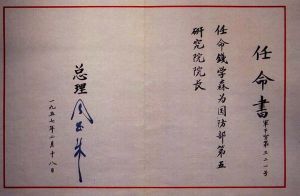 任命書
任命錢学森为国防部第五
研究院院长
总理 周恩来
一九五七年二月十八日